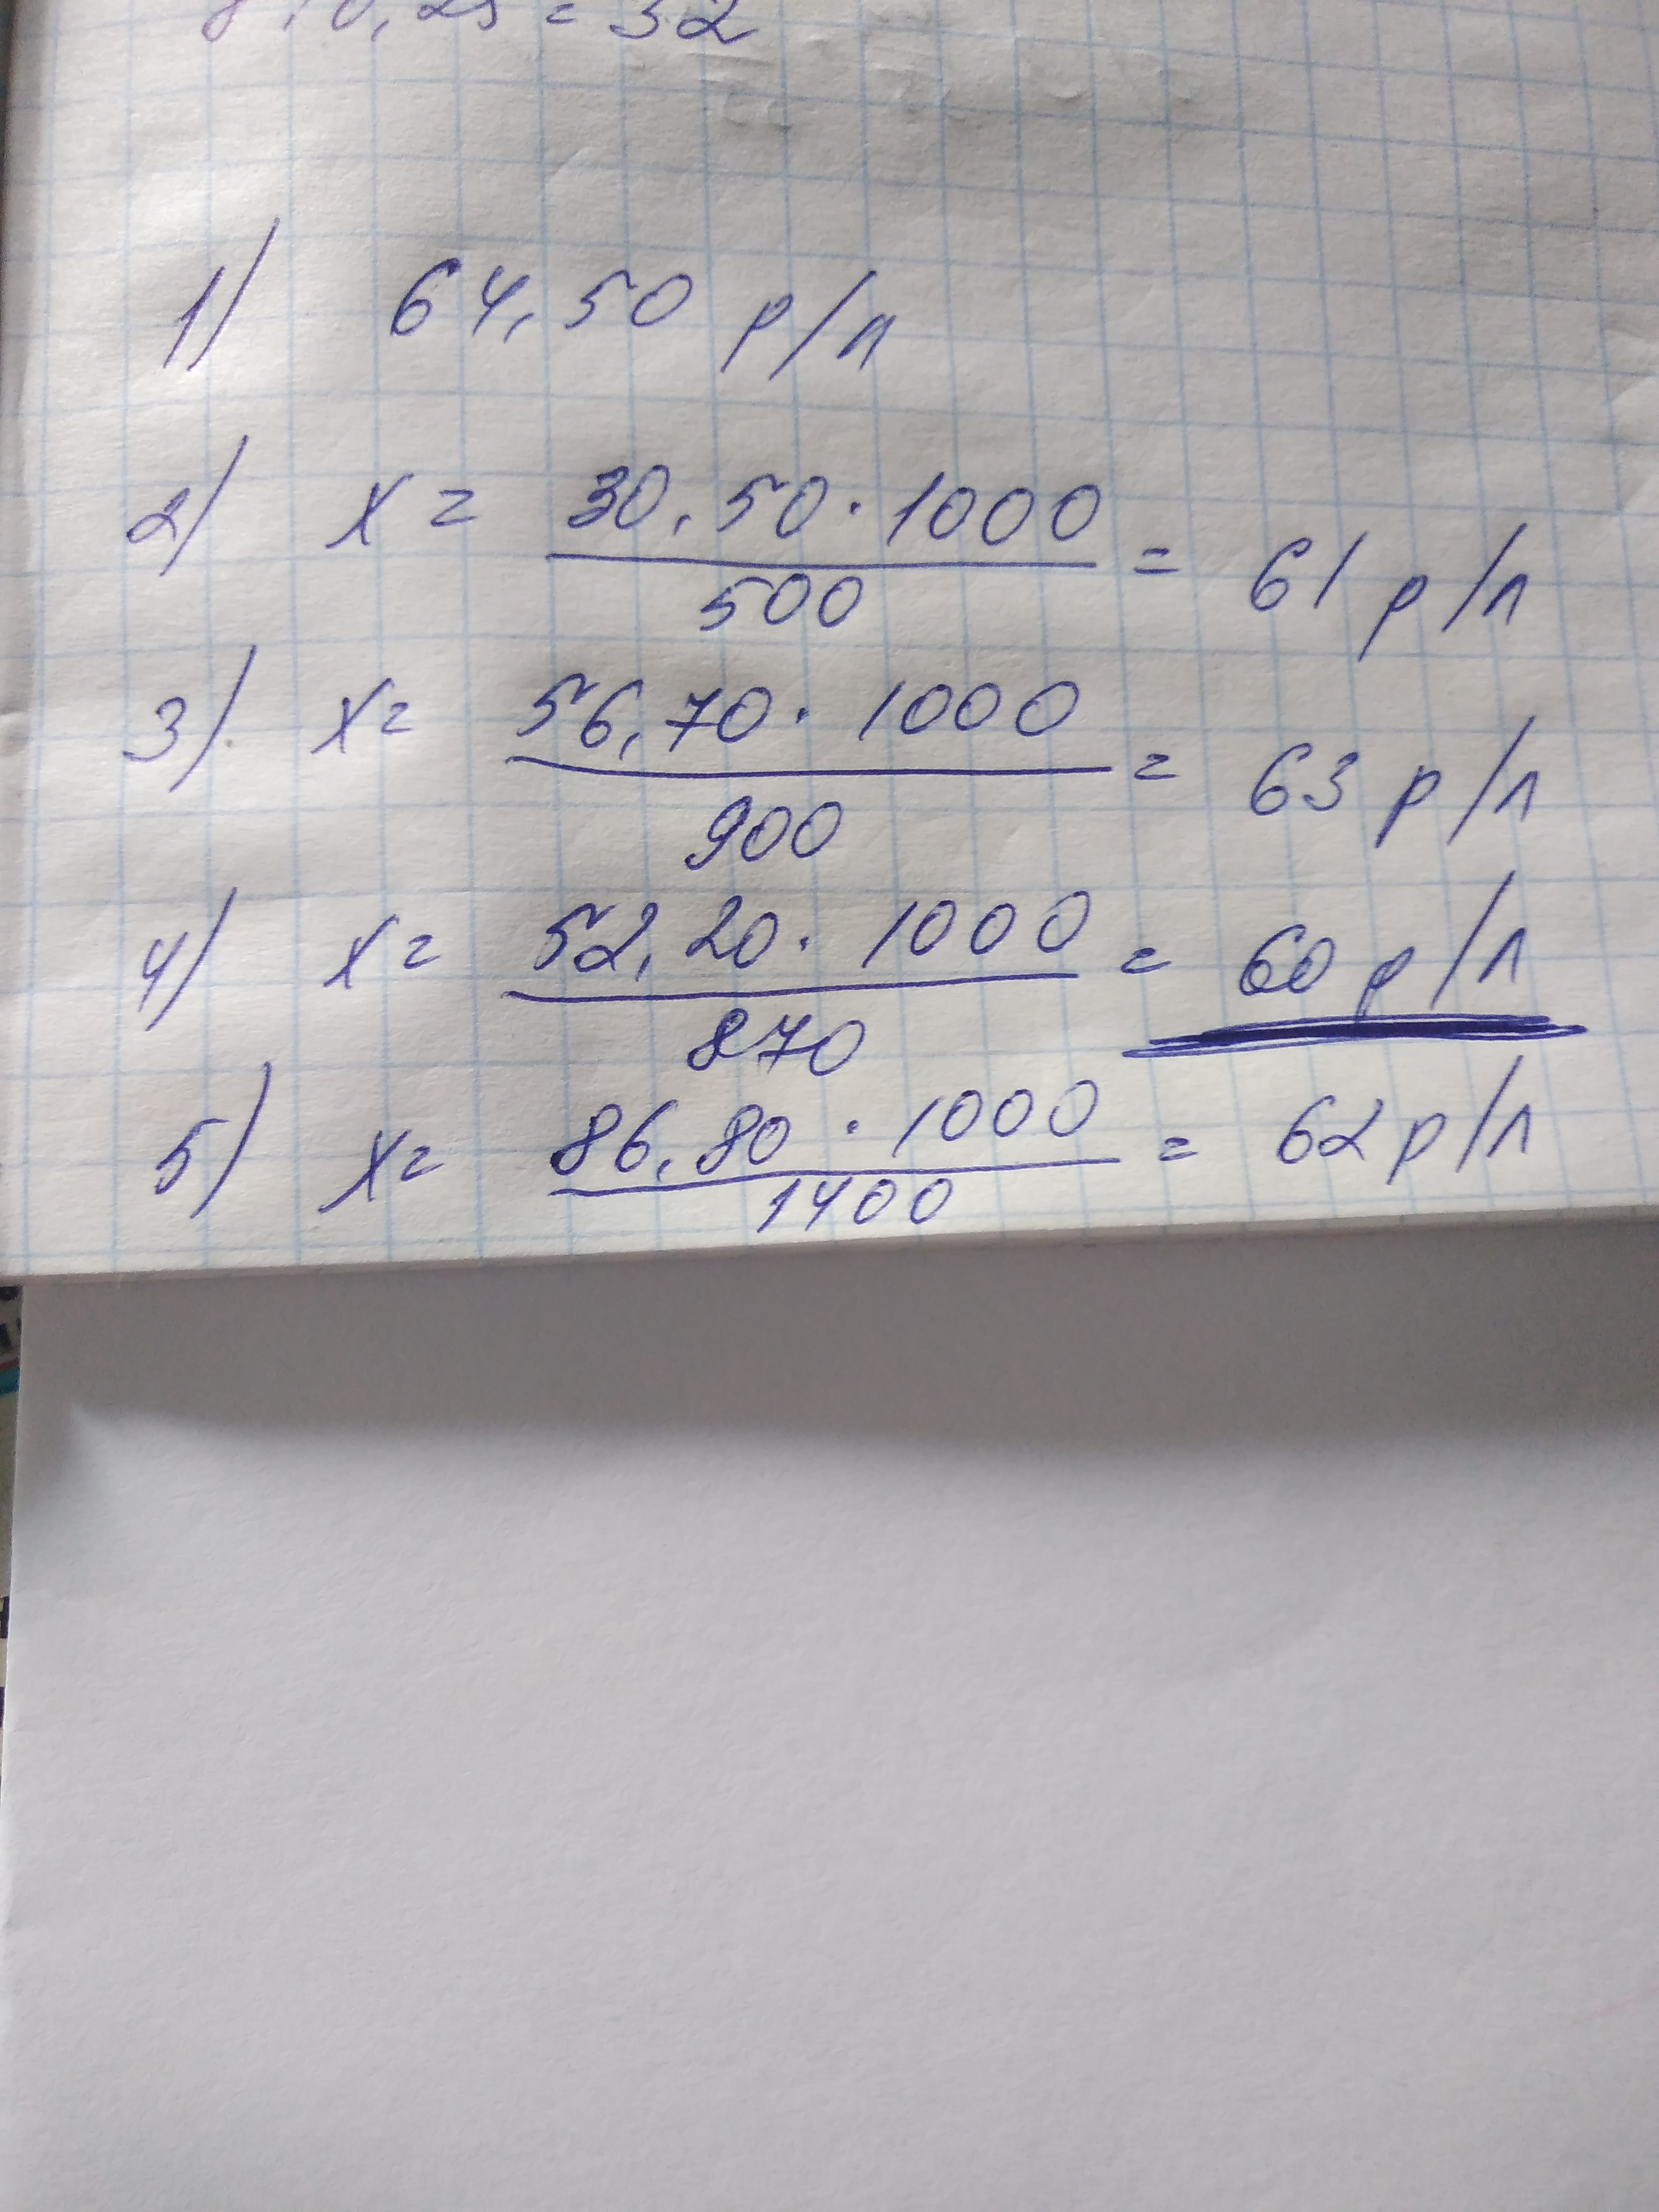 8 : 0,25 = 32
1) 64,50 р/л
2) x = 30,50 · 1000 / 500 = 61 р/л
3) x = 56,70 · 1000 / 900 = 63 р/л
4) x = 52,20 · 1000 / 870 = 60 р/л
5) x = 86,80 · 1000 / 1400 = 62 р/л